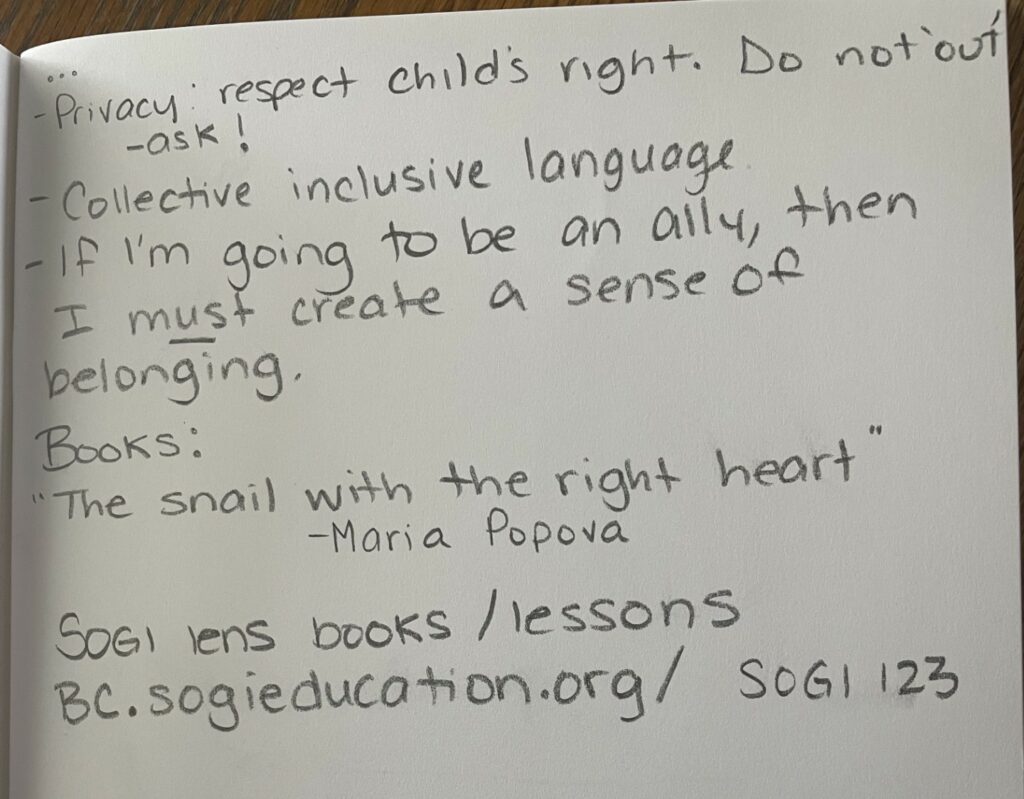 ...
- Privacy: respect child's right. Do not 'out'
- ask!
- Collective inclusive language.
- If I'm going to be an ally, then
I must create a sense of
belonging.
Books:
"The snail with the right heart"
- Maria Popova
SOGI lens books / lessons
BC.sogieducation.org/ SOGI 123